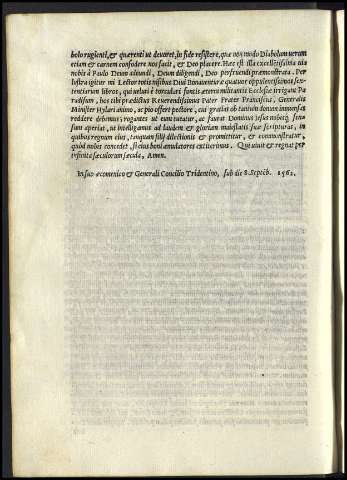 bolo rugienti, & quærenti ut devoret, in fide resistere, qua non modo Diabolum verum
etiam & carnem confodere nos facit, & Deo placere. Hæc est illa excellentissima via
nobis à Paulo Deum colendi, Deum diligendi, Deo perfruendi præmonstrata. Per
lustra igitur mi Lector totis nisibus Divi Bonaventuræ quatuor opulentissimos sen-
tentiarum libros, qui veluti è torculari fontis æterni militantis Ecclesiæ irrigant Pa
radisum, hos tibi prædictus Reverendissimus Pater Frater Franciscus, Generalis
Minister hylari animo, ac pio offert pectore, cui gratias ob tantum donum immensas
reddere debemus, rogantes ut eum tueatur, ac faveat Dominus Iesus nobisq; sen-
sum aperiat, ut intelligamus ad laudem & gloriam maiestatis suæ scripturas, in
quibus regnum eius, tanquam filijs dilectionis & promittitur, & commonstratur,
quod nobis concedet, si eius boni æmulatores extiterimus. Qui vivit & regnat per
infinita sæculorum sæcula, Amen.
In suo œcomenico & Generali Concilio Tridentino, sub die 8. Septẽb. 1562.